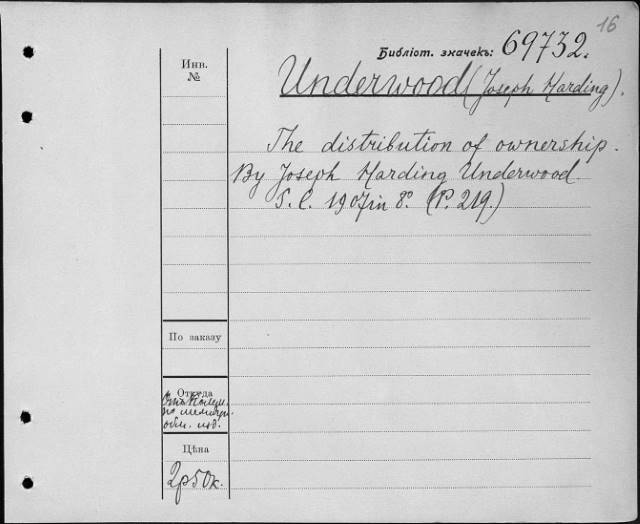 16
Библіот. значекъ: 69732.
Инв.
№
Underwood (Joseph Harding).
The distribution of ownership.
By Joseph Harding Underwood.
S. l. 1907 in 8°. (P. 219.)
По заказу
Откуда
обм. изд.
Цѣна
2р50к.